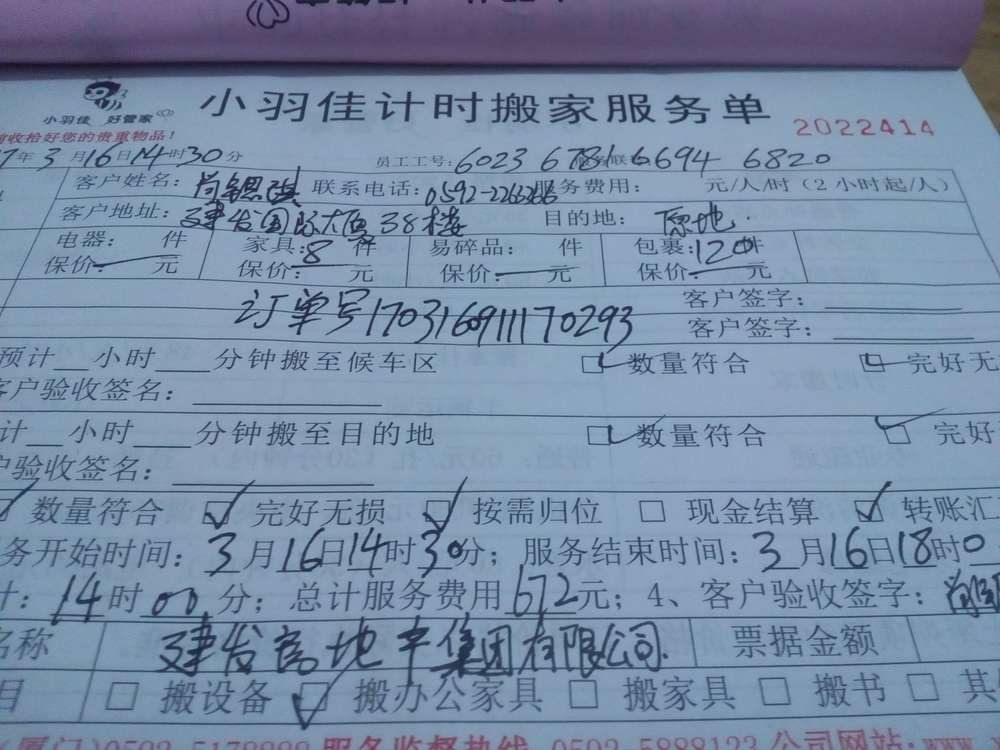 小羽佳计时搬家服务单
小羽佳 好管家
2022414
前收拾好您的贵重物品！
7年3月16日14时30分 员工工号：6023 6781 6694 6820
客户姓名： 联系电话：0592-2263 服务费用： 元/人/时（2小时起/人）
客户地址：建发国际大厦38楼 目的地：原地
电器： 件 家具：8件 易碎品： 件 包裹：120件
保价： 元 保价： 元 保价： 元 保价： 元
客户签字：
订单号170316911170293
客户签字：
预计 小时 分钟搬至候车区 数量符合 完好无
客户验收签名：
计 小时 分钟搬至目的地 数量符合 完好
户验收签名：
数量符合 完好无损 按需归位 现金结算 转账汇
务开始时间：3月16日14时30分；服务结束时间：3月16日18时0
计：14时00分；总计服务费用672元；4、客户验收签字：
名称 建发房地产集团有限公司 票据金额
目 搬设备 搬办公家具 搬家具 搬书 其
厦门)0592-5178888 服务监督热线 0592-5888123 公司网站：www.